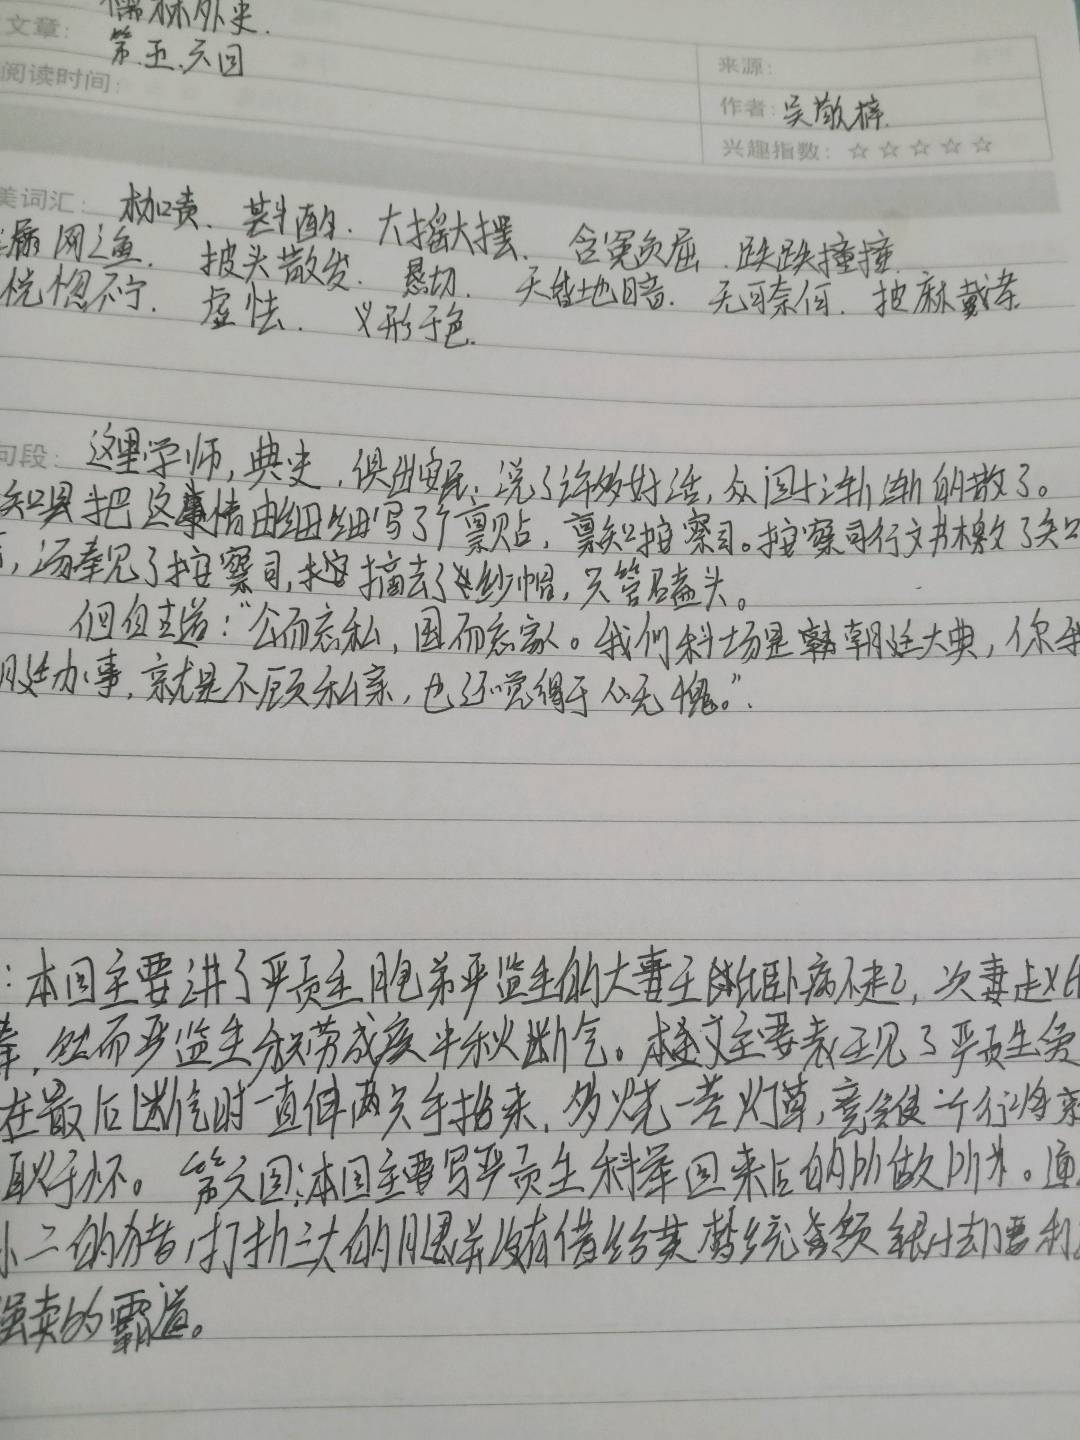 儒林外史.
文章:
第五、六回
来源:
阅读时间:
作者: 吴敬梓.
兴趣指数: ☆☆☆☆☆
美词汇: 枷责. 斟酌. 大摇大摆. 含冤负屈. 跌跌撞撞.
漏网之鱼. 披头散发. 恳切. 天昏地暗. 无可奈何. 披麻戴孝
恍惚不宁. 虚怯. 义形于色.
句段: 这里学师,典史,俱出安民,说了许多好话,众回子渐渐的散了。
知县把这事情由细细写了个禀贴,禀知按察司。按察司行文书檄了知
,汤奉见了按察司,摘去了纱帽,只管磕头。
但自道:“公而忘私,国而忘家。我们科场是朝廷大典,你我
朝廷办事,就是不顾私亲,也还觉得于心无愧。”.
:本回主要讲了严贡生胞弟严监生的大妻王氏卧病不起,次妻赵氏
,然而严监生积劳成疾中秋断气。本文主要表现了严贡生贪
在最后断气时一直伸两只手指来,多烧一茎灯草,竟会使一个行将
耿于怀。 第六回:本回主要写严贡生科举回来后的所做所为。通
小二的猪,打折三大的腿并没有借给黄梦统索额银子却要利
强卖的霸道。